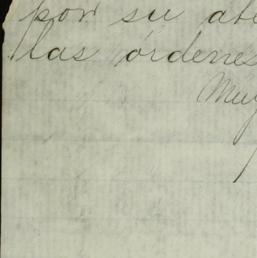 por su abe
las órdenes
Muy